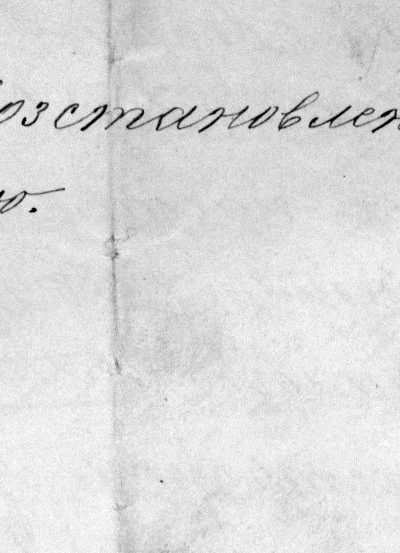 возстановлен
ю.